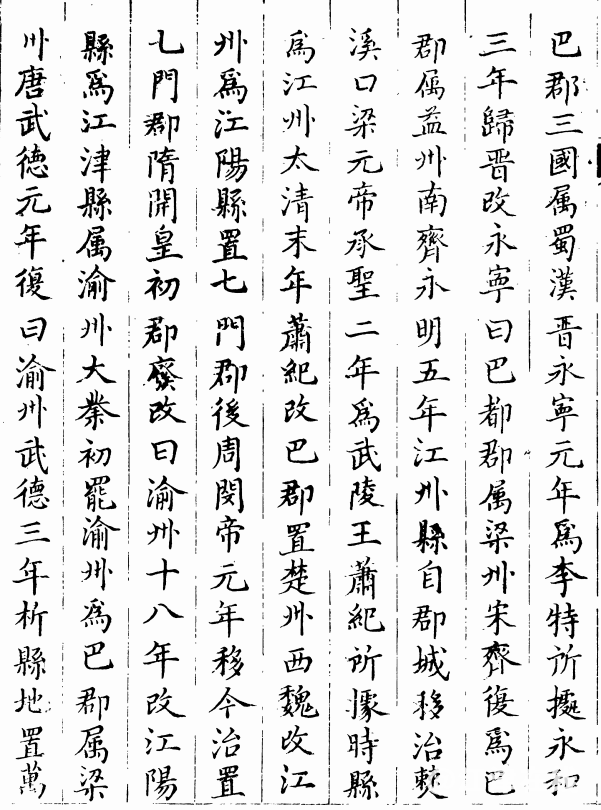 巴郡三國属蜀漢晋永寧元年為李特所據永和
三年歸晋改永寧曰巴都郡属梁州宋齊復為巴
郡属益州南齊永明五年江州縣自郡城移治僰
溪口梁元帝承聖二年為武陵王蕭紀所據時縣
為江州太清末年蕭紀改巴郡置楚州西魏改江
州為江陽縣置七門郡後周閔帝元年移今治置
七門郡隋開皇初郡廢改曰渝州十八年改江陽
縣為江津縣属渝州大業初罷渝州為巴郡属梁
州唐武德元年復曰渝州武德三年析縣地置萬